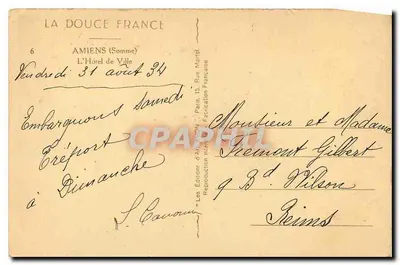 LA DOUCE FRANCE
6 AMIENS (Somme)
L'Hôtel de Ville
Vendredi 31 août 34
Embarquons samedi
Tréport
à Dimanche
"Les Editions d'Art Paris, 15, Rue Martel
Reproduction Fabrication Française
CPAPHIL
Monsieur et Madame
Fremont Gilbert
9 Bd Wilson
Reims